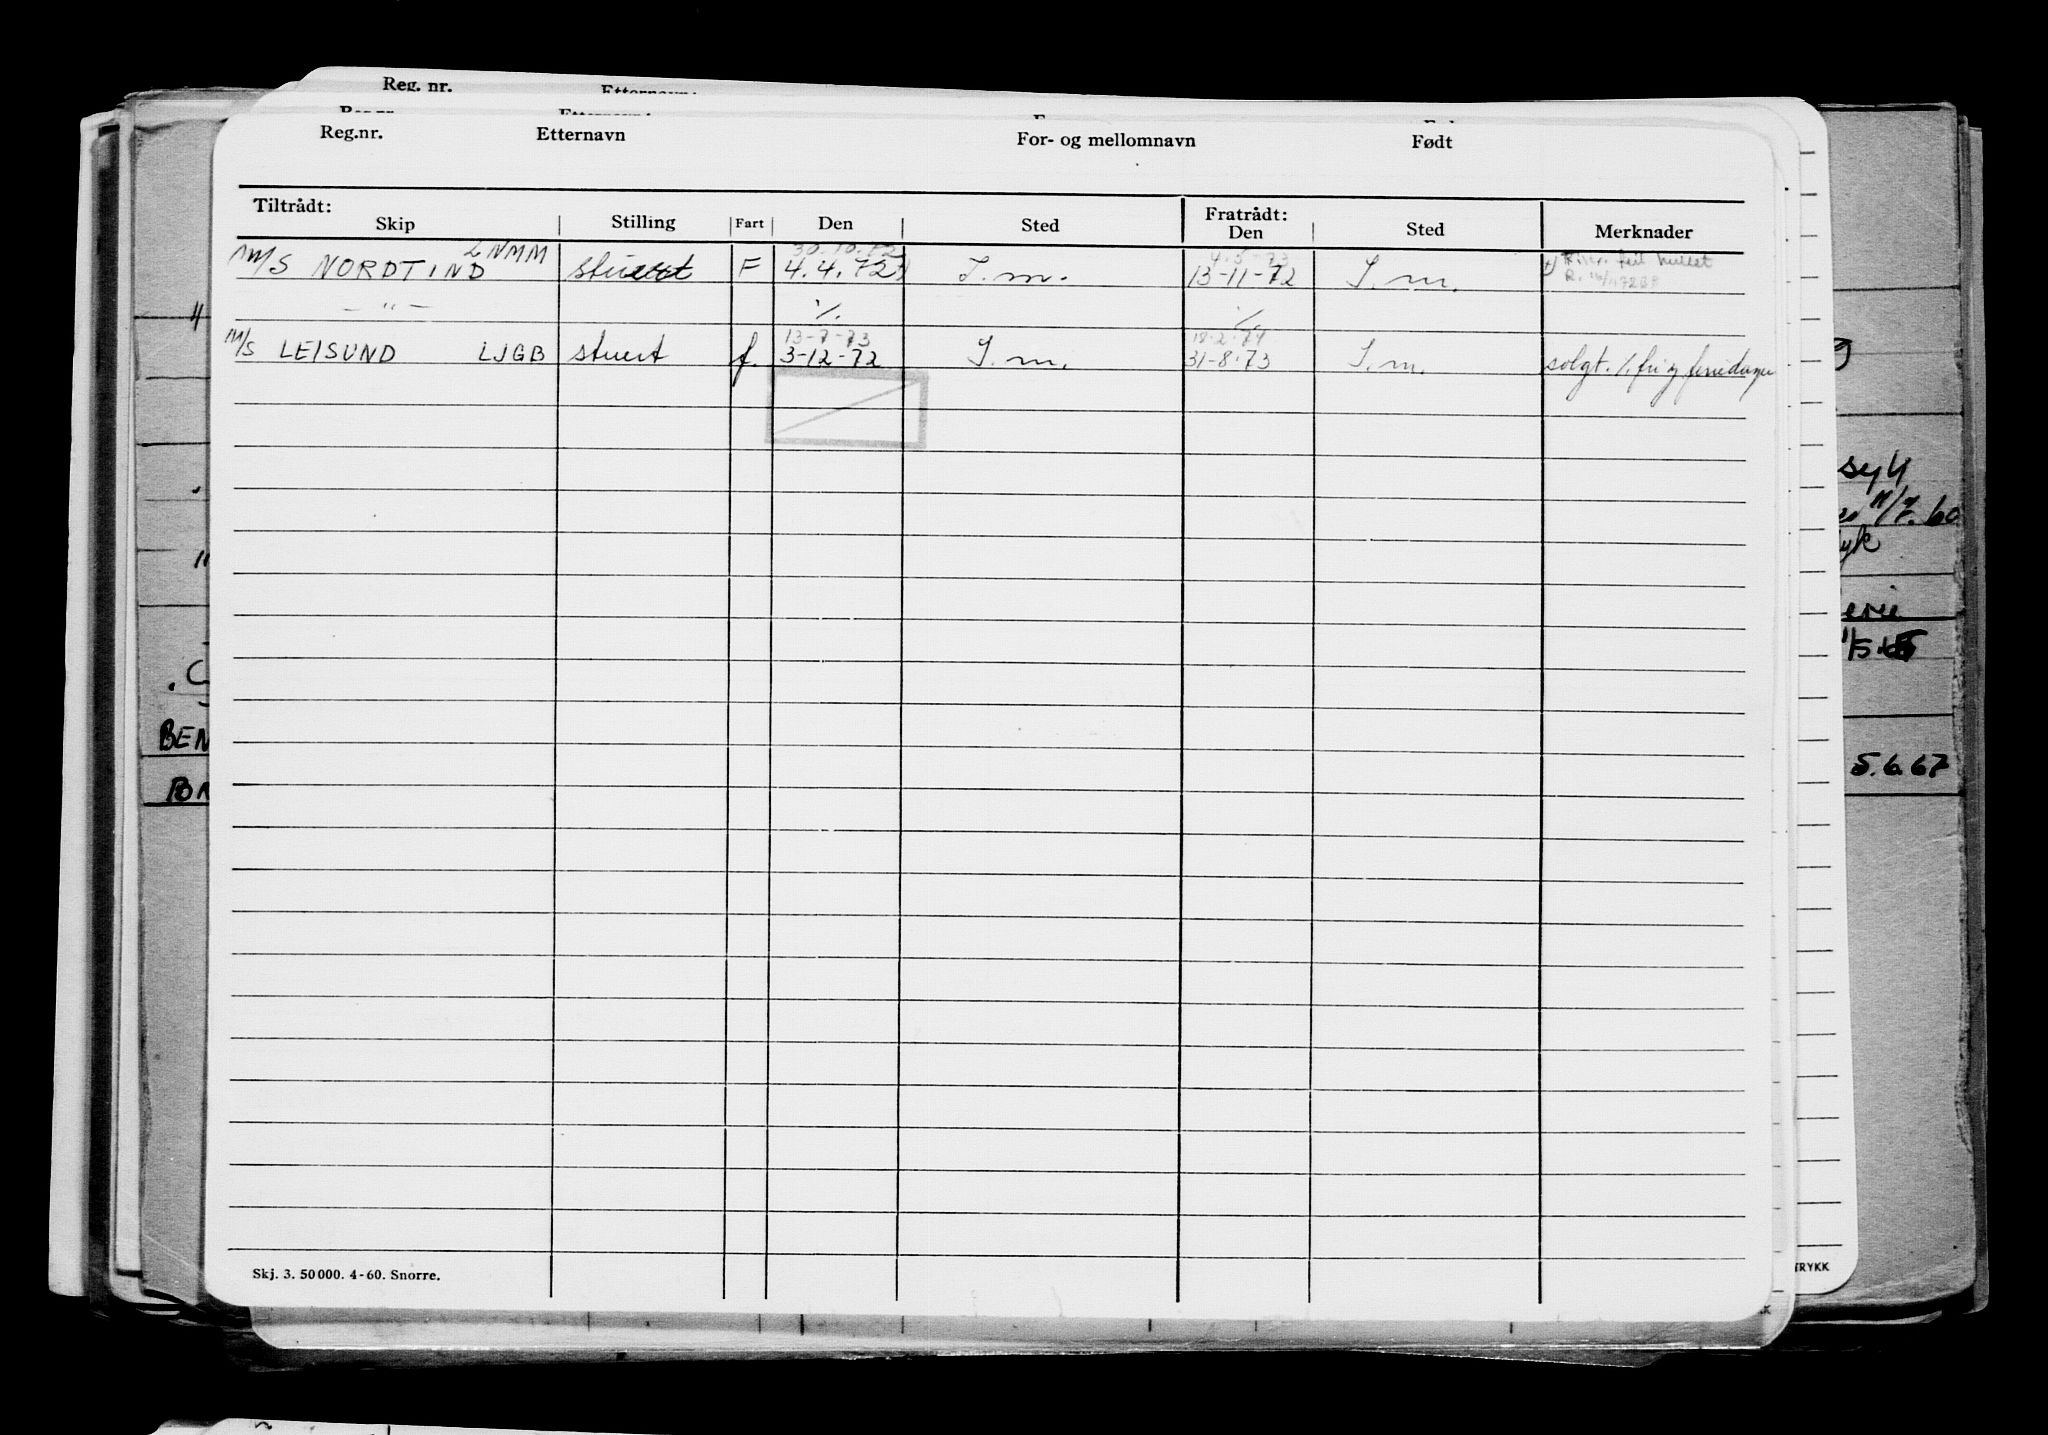 Reg. nr. Etternavn:
Reg.nr. Etternavn For- og mellomnavn Født
Tiltrådt: Fratrådt:
Skip Stilling Fart Den Sted Den Sted Merknader
LNMM 30.10.72 4.5-73
M/S NORDTIND stuert F 4.4.72 I.m. 13-11-72 I.m. feil hullet
— " — ./. ./.
13-7-73 18.2.74
M/S LEISUND LJGB stuert f. 3-12-72 I.m. 31-8-73 I.m. solgt. ./. fri og feriedager
"
syk
11/7.60
"
1/5.65
BEN
5.6.67
Skj. 3. 50 000. 4-60. Snorre.
TRYKK